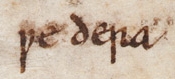 pe depa